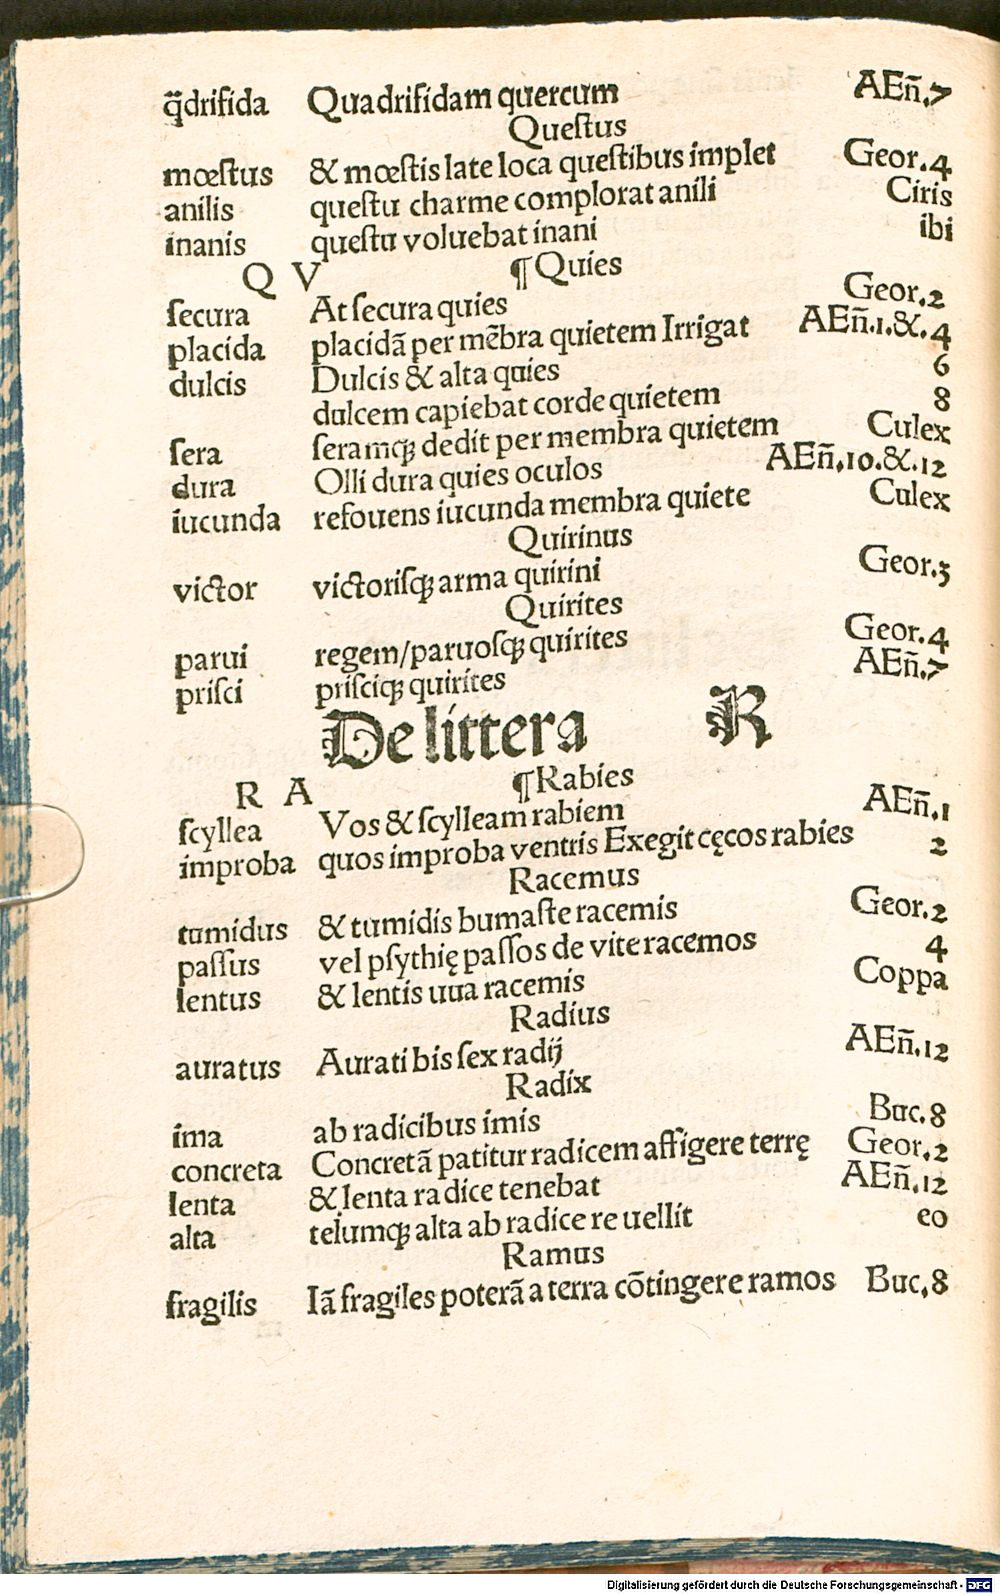 q̃drifida Quadrifidam quercum AEñ.7
Queſtus
mœſtus & mœſtis late loca queſtibus implet Geor.4
anilis queſtu charme complorat anili Ciris
inanis queſtu voluebat inani ibi
Q V ¶Quies
ſecura At ſecura quies Geor.2
placida placidã per mẽbra quietem Irrigat AEñ.1.&.4
dulcis Dulcis & alta quies 6
dulcem capiebat corde quietem 8
ſera ſeramq̧ dedit per membra quietem Culex
dura Olli dura quies oculos AEñ.10.&.12
iucunda refouens iucunda membra quiete Culex
Quirinus
victor victoriſq̧ arma quirini Geor.3
Quirites
parui regem/paruoſq̧ quirites Geor.4
priſci priſciq̧ quirites AEñ.7
De littera R
R A ¶Rabies
ſcyllea Vos & ſcylleam rabiem AEñ.1
improba quos improba ventris Exegit cęcos rabies 2
Racemus
tumidus & tumidis bumaſte racemis Geor.2
paſſus vel pſythię paſſos de vite racemos 4
lentus & lentis uua racemis Coppa
Radius
auratus Aurati bis ſex radij AEñ.12
Radix
ima ab radicibus imis Buc.8
concreta Concretã patitur radicem affigere terrę Geor.2
lenta & lenta radice tenebat AEñ.12
alta telumq̧ alta ab radice reuellit eo
Ramus
fragilis Iã fragiles poterã a terra cõtingere ramos Buc.8
Digitalisierung gefördert durch die Deutsche Forschungsgemeinschaft - DFG